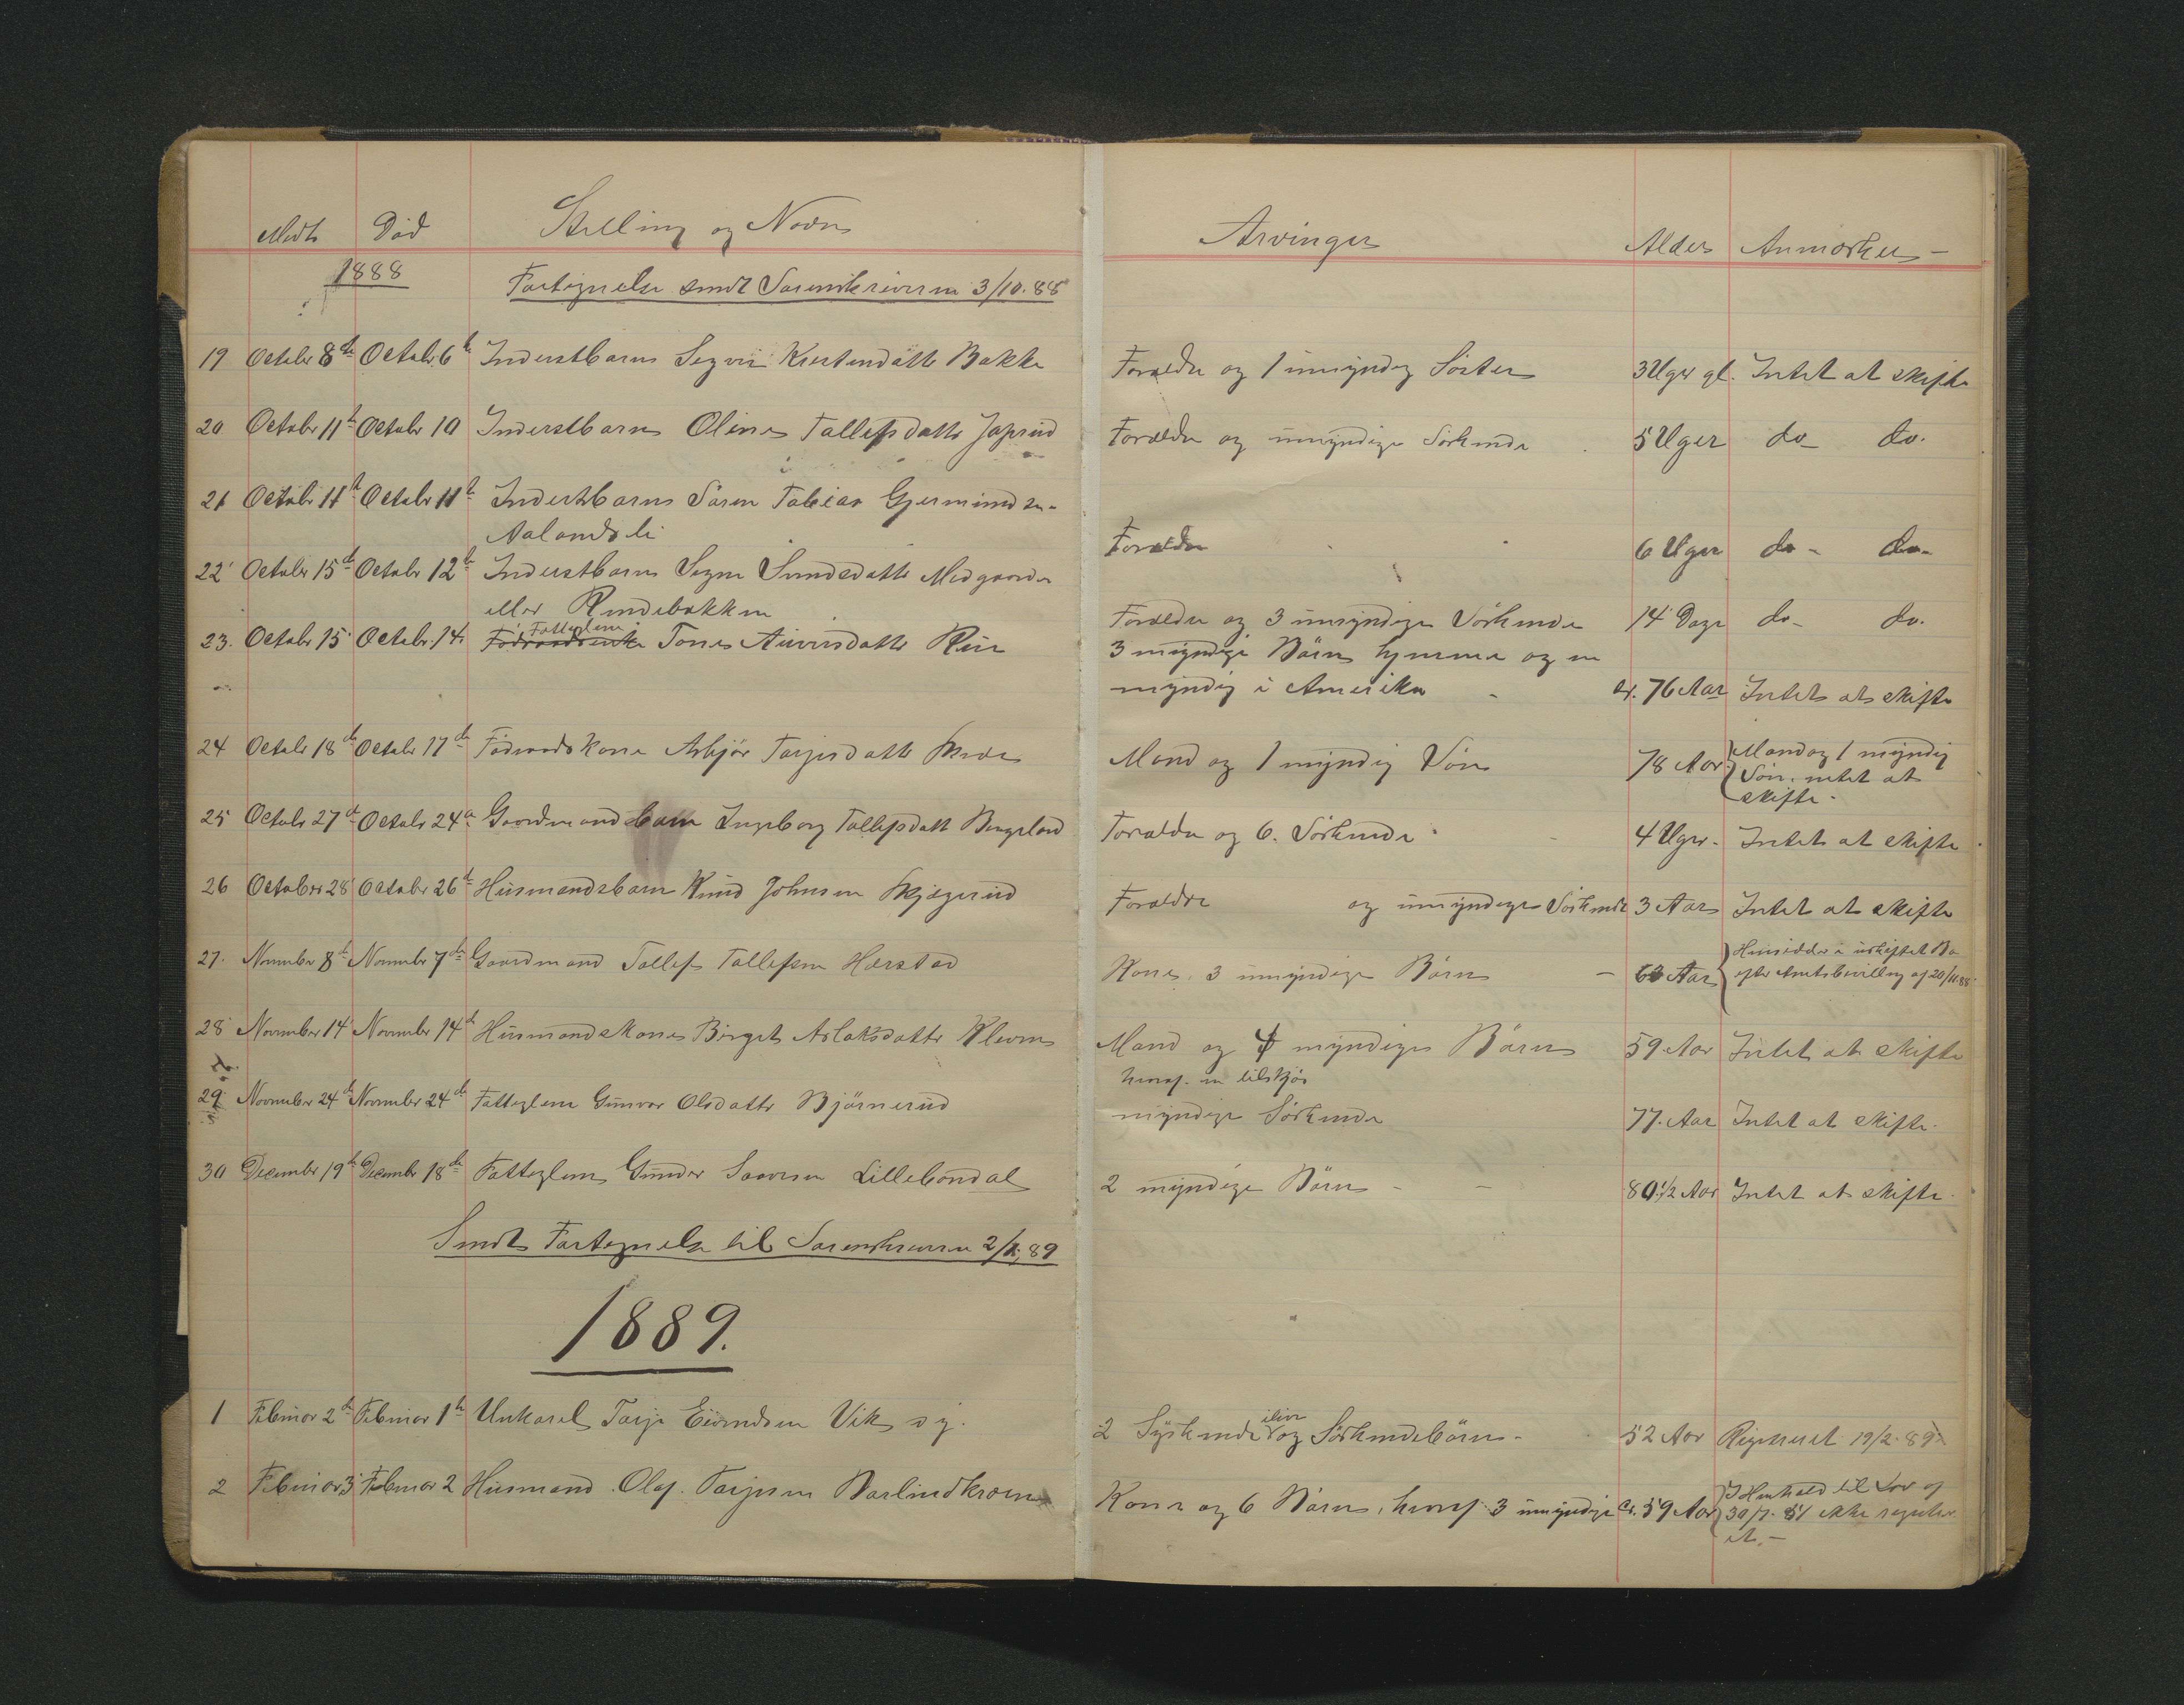 Meldt Død Stilling og Navn Arvinger Alder Anmærkn –
1888
Fortegnelse sendt Sorenskriveren 3/10. 88
19 October 8de October 6te Inderstbarn Signe Kristendatter Bakke Forældre og 1 umyndig Søster 3 Uger gl. Intet at skifte
20 October 11te October 10 Inderstbarn Oline Tallefsdatter Japrud Forældre og umyndige Søskende 5 Uger do – do.
21 October 11te October 11te Inderstbarn Søren Tobias Gjermundsen
Aalandsli Forældre 6 Uger do – do –
22 October 15de October 12te Inderstbarn Signe Svendsdatter Midgaarden
eller Rindebakken Forældre og 3 umyndige Søskende 14 Dage do – do.
23. October 15 October 14. Føderaadsenke Fattiglem Tone Eivindsdatter Rui 3 myndige Børn hjemme og en
myndig i Amerika cr. 76 Aar Intet at skifte
24 October 18de October 17de Føderaadskone Asbjør Tarjesdatter Mand og 1 myndig Søn 78 Aar Mand og 1 myndig
Søn. intet at
skifte –
25 October 27de October 24de Gaardmandsbarn Ingeborg Tallefsdatt Bergland Forældre og 6. Søskende 4 Uger. Intet at skifte
26 October 28 October 26de Husmandsbarn Knud Johnsen Skjægerud Forældre og umyndige Søskende 3 Aar Intet at skifte
27. November 8de November 7de Gaardmand Tallef Tallefsen Harstad Kone, 3 umyndige Børn – 63 Aar Hensidder i uskiftet Bo
efter Amtsbevilling af 20/11 88
28 November 14 November 14de Husmandskone Birgit Aslaksdatter Kleven Mand og myndige Børn 59 Aar Intet at skifte
hvoraf en tilskjøs
29 November 24de November 24de Fattiglem Gunvor Olsdatter Bjørnerud myndige Søskende 77. Aar Intet at skifte.
30 December 19de December 18de Fattiglem Gunder Saavesen Lillebondal 2 myndige Børn – – 80 1/2 Aar Intet at skifte.
Sendt Fortegnelse til Sorenskriveren 2/1. 89
1889.
1 Februar 2de Februar 1te Unkarl Tarje Eivindsen Vik s y. 2 Syskende ilive og Søskendebørn – 52 Aar Registreret 19/2 89.
2 Februar 3 Februar 2 Husmand Olaf Tarjesen Barlindkroen Kone og 6 Børn, hvoraf 3 umyndige cr. 59 Aar I Henhold til Lov af
30/7. 51 ikke register
et. –